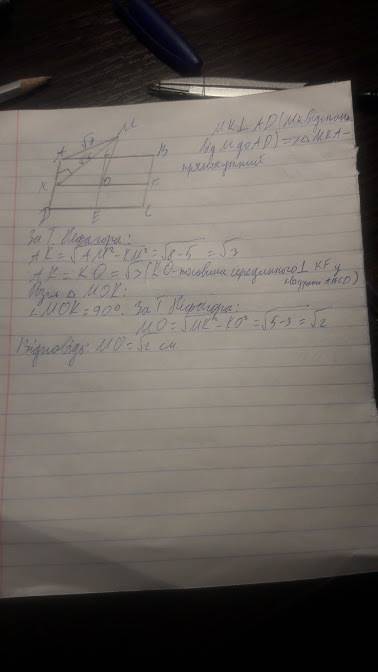 MK⊥AD (MK відстань
від M до AD) => ΔMKA -
прямокутний
M
√8
A
B
K
O
F
D
E
C
За Т. Піфагора:
AK = √AM² - KM² = √8-5 = √3
AK = KO = √3 (KO - половина середина ⊥ KF у
квадрата ABCD)
Розгл Δ MOK:
∠MOK = 90°. За Т Піфагора:
MO = √MK² - KO² = √5-3 = √2
Відповідь: MO = √2 см